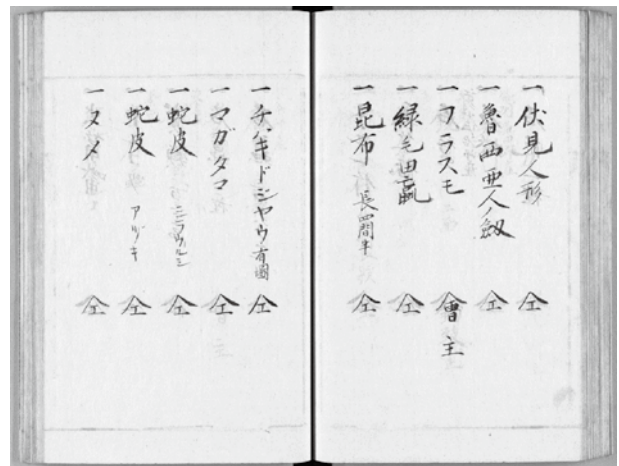 一 伏見人形 仝
一 魯西亜人ノ釼 仝
一 フラスモ 會主
一 緑毛田蠃 仝
一 昆布 長四間半 仝
一 チヽキドジヤウ 有圖 仝
一 マガタマ 仝
一 蛇皮 仝
一 蛇皮 アヅキ 仝
一 ヌメ 仝